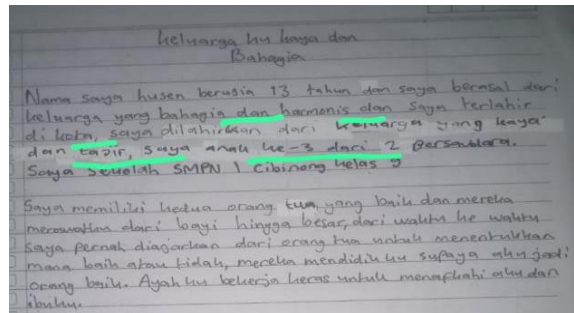 Keluarga ku kaya dan
Bahagia
Nama saya husen berusia 13 tahun dan saya berasal dari
keluarga yang bahagia dan harmonis dan saya terlahir
di kota, saya dilahirkan dari keluarga yang kaya
dan tajir, saya anak ke-3 dari 2 Bersaudara.
Saya sekolah SMPN 1 Cibinong kelas 9
Saya memiliki kedua orang tua, yang baik dan mereka
merawatku dari bayi hingga besar, dari waktu ke waktu
saya pernah diajarkan dari orang tua untuk menentukkan
mana baik atau tidak, mereka mendidik ku supaya aku jadi
orang baik. Ayah ku bekerja keras untuk menafkahi aku dan
ibuku.